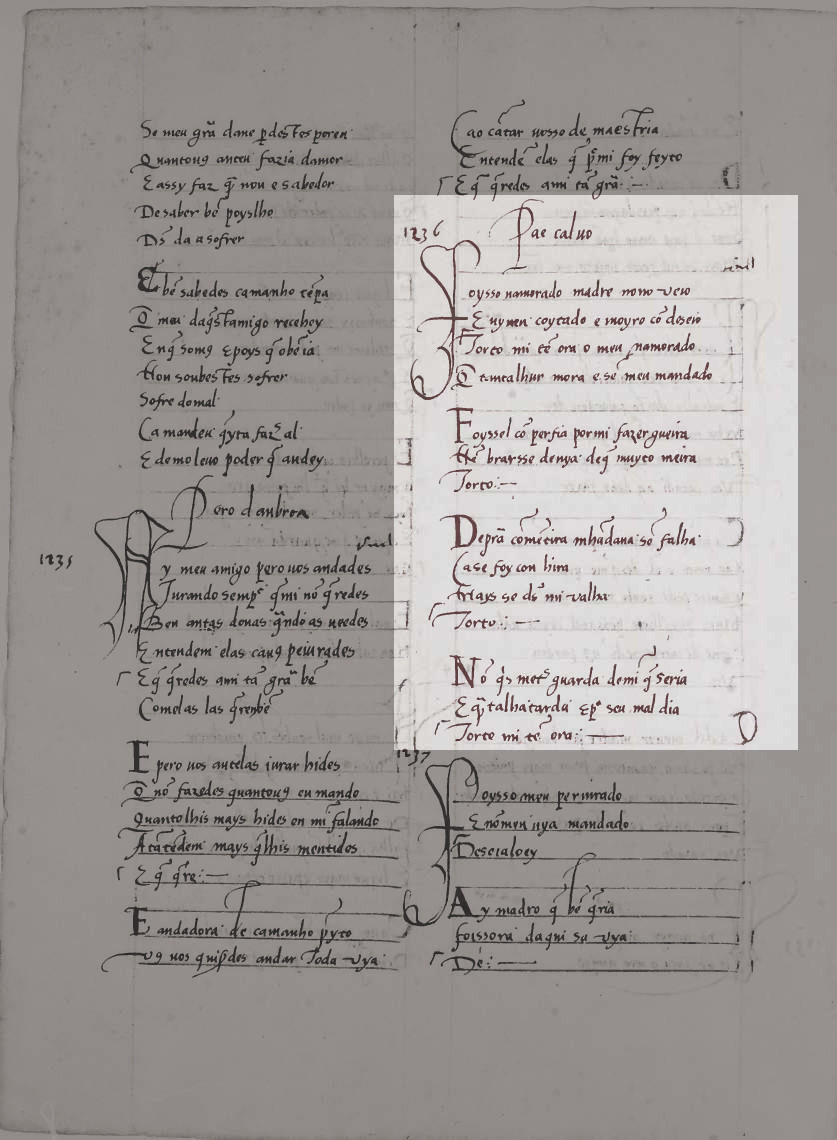 Se meu grã dane p̱destes peren
Quantous anteu fazia damor
E assy faz q̃ nou e sabedor
De saber bẽ poyslho
Ds̃ da a sofrer
E bẽ sabedes camanho tẽpa
Q̃ meu daq̃stamigo recebey
Enq̃ somꝯ epoys q̃ obẽia
Non soubestes sofrer
Sofre domal
Ca mandeu q̃yta fazal
E demo levo poder q̃ andey
Pero danbroa
1235
A y meu amigo pero uos andades
Jurando semp̃ q̃ mi nõ q̃redes
Ben antas donas q̃ndo as ueedes
Entendem elas cauꝯ peiurades
E q̃ q̃redes ami tã grã bẽ
Comelas las q̃renbẽ
E pero uos antelas iurar hides
Q̃ nõ fazedes quantouꝯ eu mando
Quantolhis mays hides en mi falando
Atãtẽdem mays q̃lhis mentides
E q̃ q̃re:—
E andadora de camanho p̃yto
Uꝯ uos quip̱des andar toda uya
Cao cãtar uosso de maestria
Entendẽ elas q̃ p̱ mi foy feyto
E q̃ q̃redes ami tã grã:—
1236 Pae caluo
Foysso namorado madre nono ueio
E uyuen coytado e moyro cõ deseio
Torto mi tẽ ora o meu namorado
Q̃ tantalhur mora e sẽ meu mandado
Foyssel cõ perfia por mi fazer gueira
Nẽbrarsse deuya deq̃ muyto meira
Torto:—
Deprã comẽtira mhãdaua sẽ falha
Ca se foy con hira
Mays se ds̃ mi ualha
Torto:—
Nõ q̃s met̃ guarda demi q̃ seria
E q̃ talhatarda ep̱ seu mal dia
Torto mi tẽ ora:—
1237
Foysso meu periurado
E nõmen uya mandado
Deseialoey
Ay madro q̃ bẽ q̃ria
foissora daqui sa uya
De:—